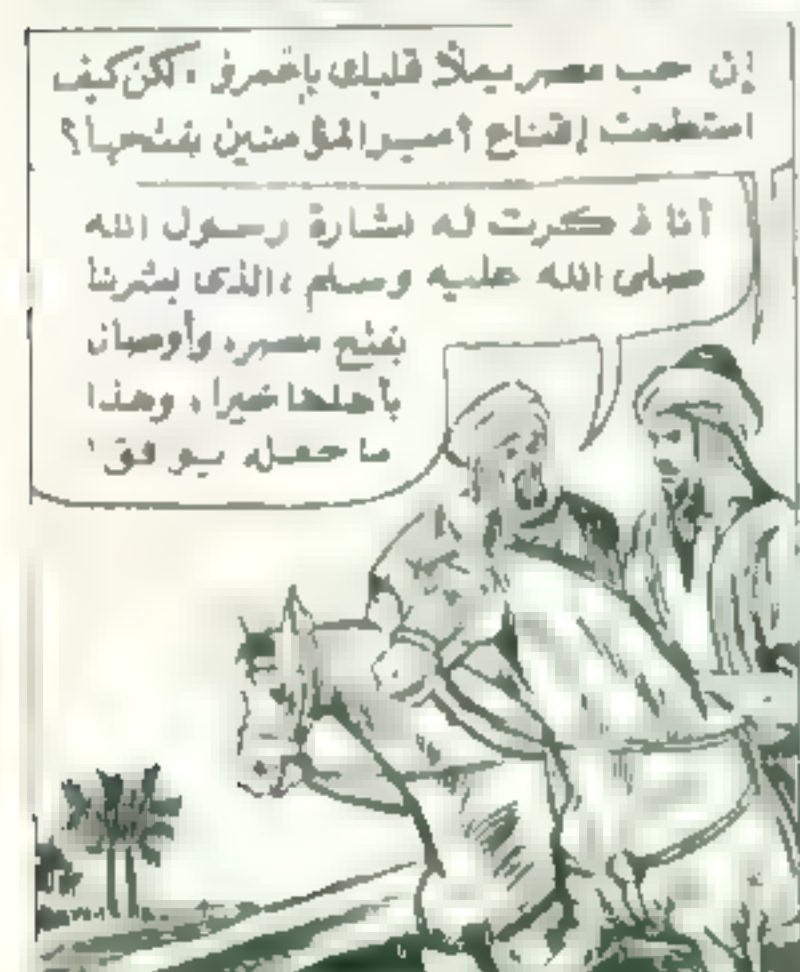 إن حب مصر يملأ قلبك يا عمرو . لكن كيف
استطعت إقناع أمير المؤمنين بفتحها؟
أنا ذكرت له بشارة رسول الله
صلى الله عليه وسلم ، الذى بشرنا
بفتح مصر، وأوصانا
بأهلها خيرا ، وهذا
ما جعله يوافق